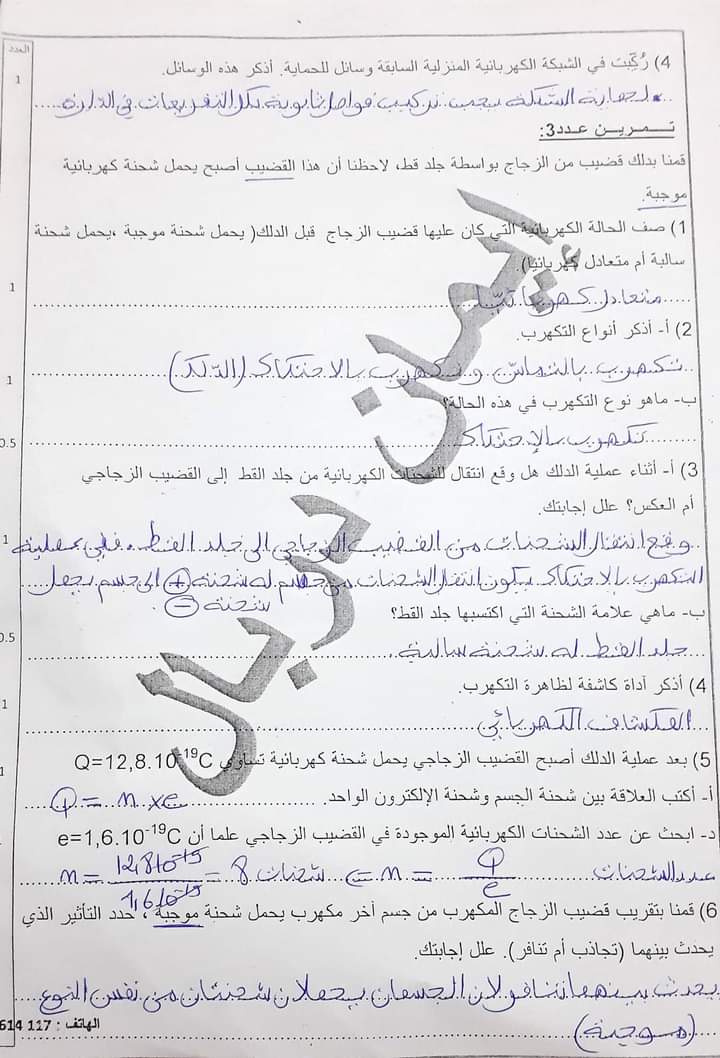 العدد
4) رُكِّبَت في الشبكة الكهربائية المنزلية السابقة وسائل للحماية. أذكر هذه الوسائل.
1
لحماية الشبكة يجب تركيب فواصل ثانوية بكل التفريعات في الدارة
تمرين عدد3:
قمنا بدلك قضيب من الزجاج بواسطة جلد قط، لاحظنا أن هذا القضيب أصبح يحمل شحنة كهربائية
موجبة.
1) صف الحالة الكهربائية التي كان عليها قضيب الزجاج قبل الدلك( يحمل شحنة موجبة ،يحمل شحنة
سالبة أم متعادل كهربائيا).
1
متعادل كهربائيّا
2) أ- أذكر أنواع التكهرب.
1
تكهرب بالتماسّ و تكهرب بالاحتكاك (الدلك)
ب- ماهو نوع التكهرب في هذه الحالة؟
0.5
تكهرب بالإحتكاك
3) أ- أثناء عملية الدلك هل وقع انتقال للشحنات الكهربائية من جلد القط إلى القضيب الزجاجي
أم العكس؟ علل إجابتك.
1
وقع انتقال الشحنات من القضيب الزجاجي الى جلد القط. ففي عملية
التكهرب بالاحتكاك يكون انتقال الشحنات من جسم له شحنة + الى جسم يحمل
شحنة -
ب- ماهي علامة الشحنة التي اكتسبها جلد القط؟
0.5
جلد القط له شحنة سالبة.
4) أذكر آداة كاشفة لظاهرة التكهرب.
1
المكشاف الكهربائي
5) بعد عملية الدلك أصبح القضيب الزجاجي يحمل شحنة كهربائية تساوي Q=12,8.10⁻¹⁹C
1
أ- أكتب العلاقة بين شحنة الجسم وشحنة الإلكترون الواحد. Q = n x e
د- ابحث عن عدد الشحنات الكهربائية الموجودة في القضيب الزجاجي علما أن e=1,6.10⁻¹⁹C
عدد الشحنات n = Q/e <= شحنات 8 = 12,8 10⁻¹⁹/1,6 10⁻¹⁹ = n
6) قمنا بتقريب قضيب الزجاج المكهرب من جسم أخر مكهرب يحمل شحنة موجبة ، حدد التأثير الذي
يحدث بينهما (تجاذب أم تنافر). علل إجابتك.
يحدث بينهما تنافر لان الجسمان يحملان شحنتان من نفس النوع
(موجبة)
الهاتف : 117 614
إيمان دربال